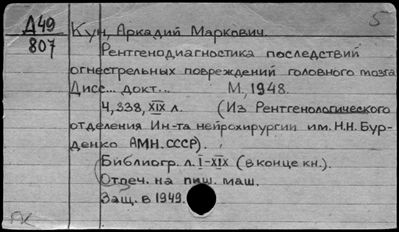 Д49
807
5
Кун, Аркадий Маркович.
Рентгенодиагностика последствий
огнестрельных повреждений головного мозга
Дисс... докт... М, 1948.
4, 338, XIX л. (Из Рентгенологического
отделения Ин-та нейрохирургии им. Н.Н. Бур-
денко АМН.СССР).
(Библиогр. л. I-XIX (в конце кн.).
Отпеч. на пиш. маш.
Защ. в 1949.